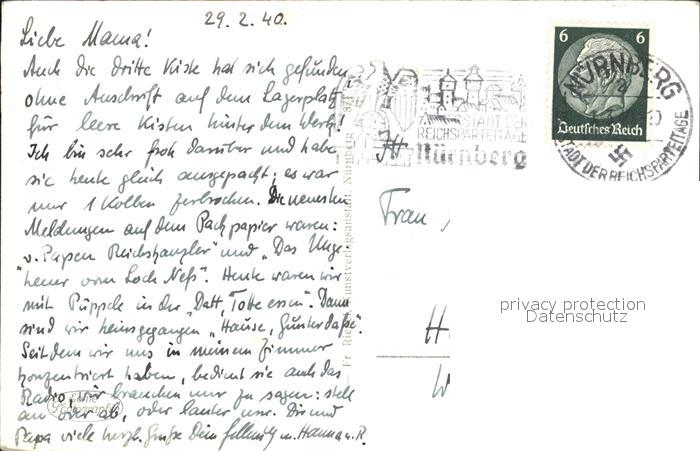 29. 2. 40.
Liebe Mama!
Auch die dritte Kiste hat sich gefunden
ohne Anschrift auf dem Lagerplatz
für leere Kisten hinter dem Werk!
Ich bin sehr froh darüber und habe
sie heute gleich ausgepackt; es war
nur 1 Kolben zerbrochen. Die neuesten
Meldungen auf dem Packpapier waren:
"v. Papen Reichskanzler" und "Das Unge-
"heuer vom Loch Neß". Heute waren wir
mit Püppele in der "Datt, Totte essen". Dann
sind wir heimgegangen "Hause, Günter
Seitdem wir uns in meinem Zimmer
konzentriert haben, bedient sie auch das
Radio, wir brauchen nur zu sagen: stell
an oder ab, oder lauter usw. Dir und
Papa viele herzl. Grüße Dein m. Hanna u. R.
STADT DER
REICHSPARTEITAGE
Nürnberg
6 6
Deutsches Reich
NÜRNBERG
STADT DER REICHSPARTEITAGE
Kunstverlagsanstalt, Nürnberg
Frau
H
W
Echte
Fotographie
privacy protection
Datenschutz